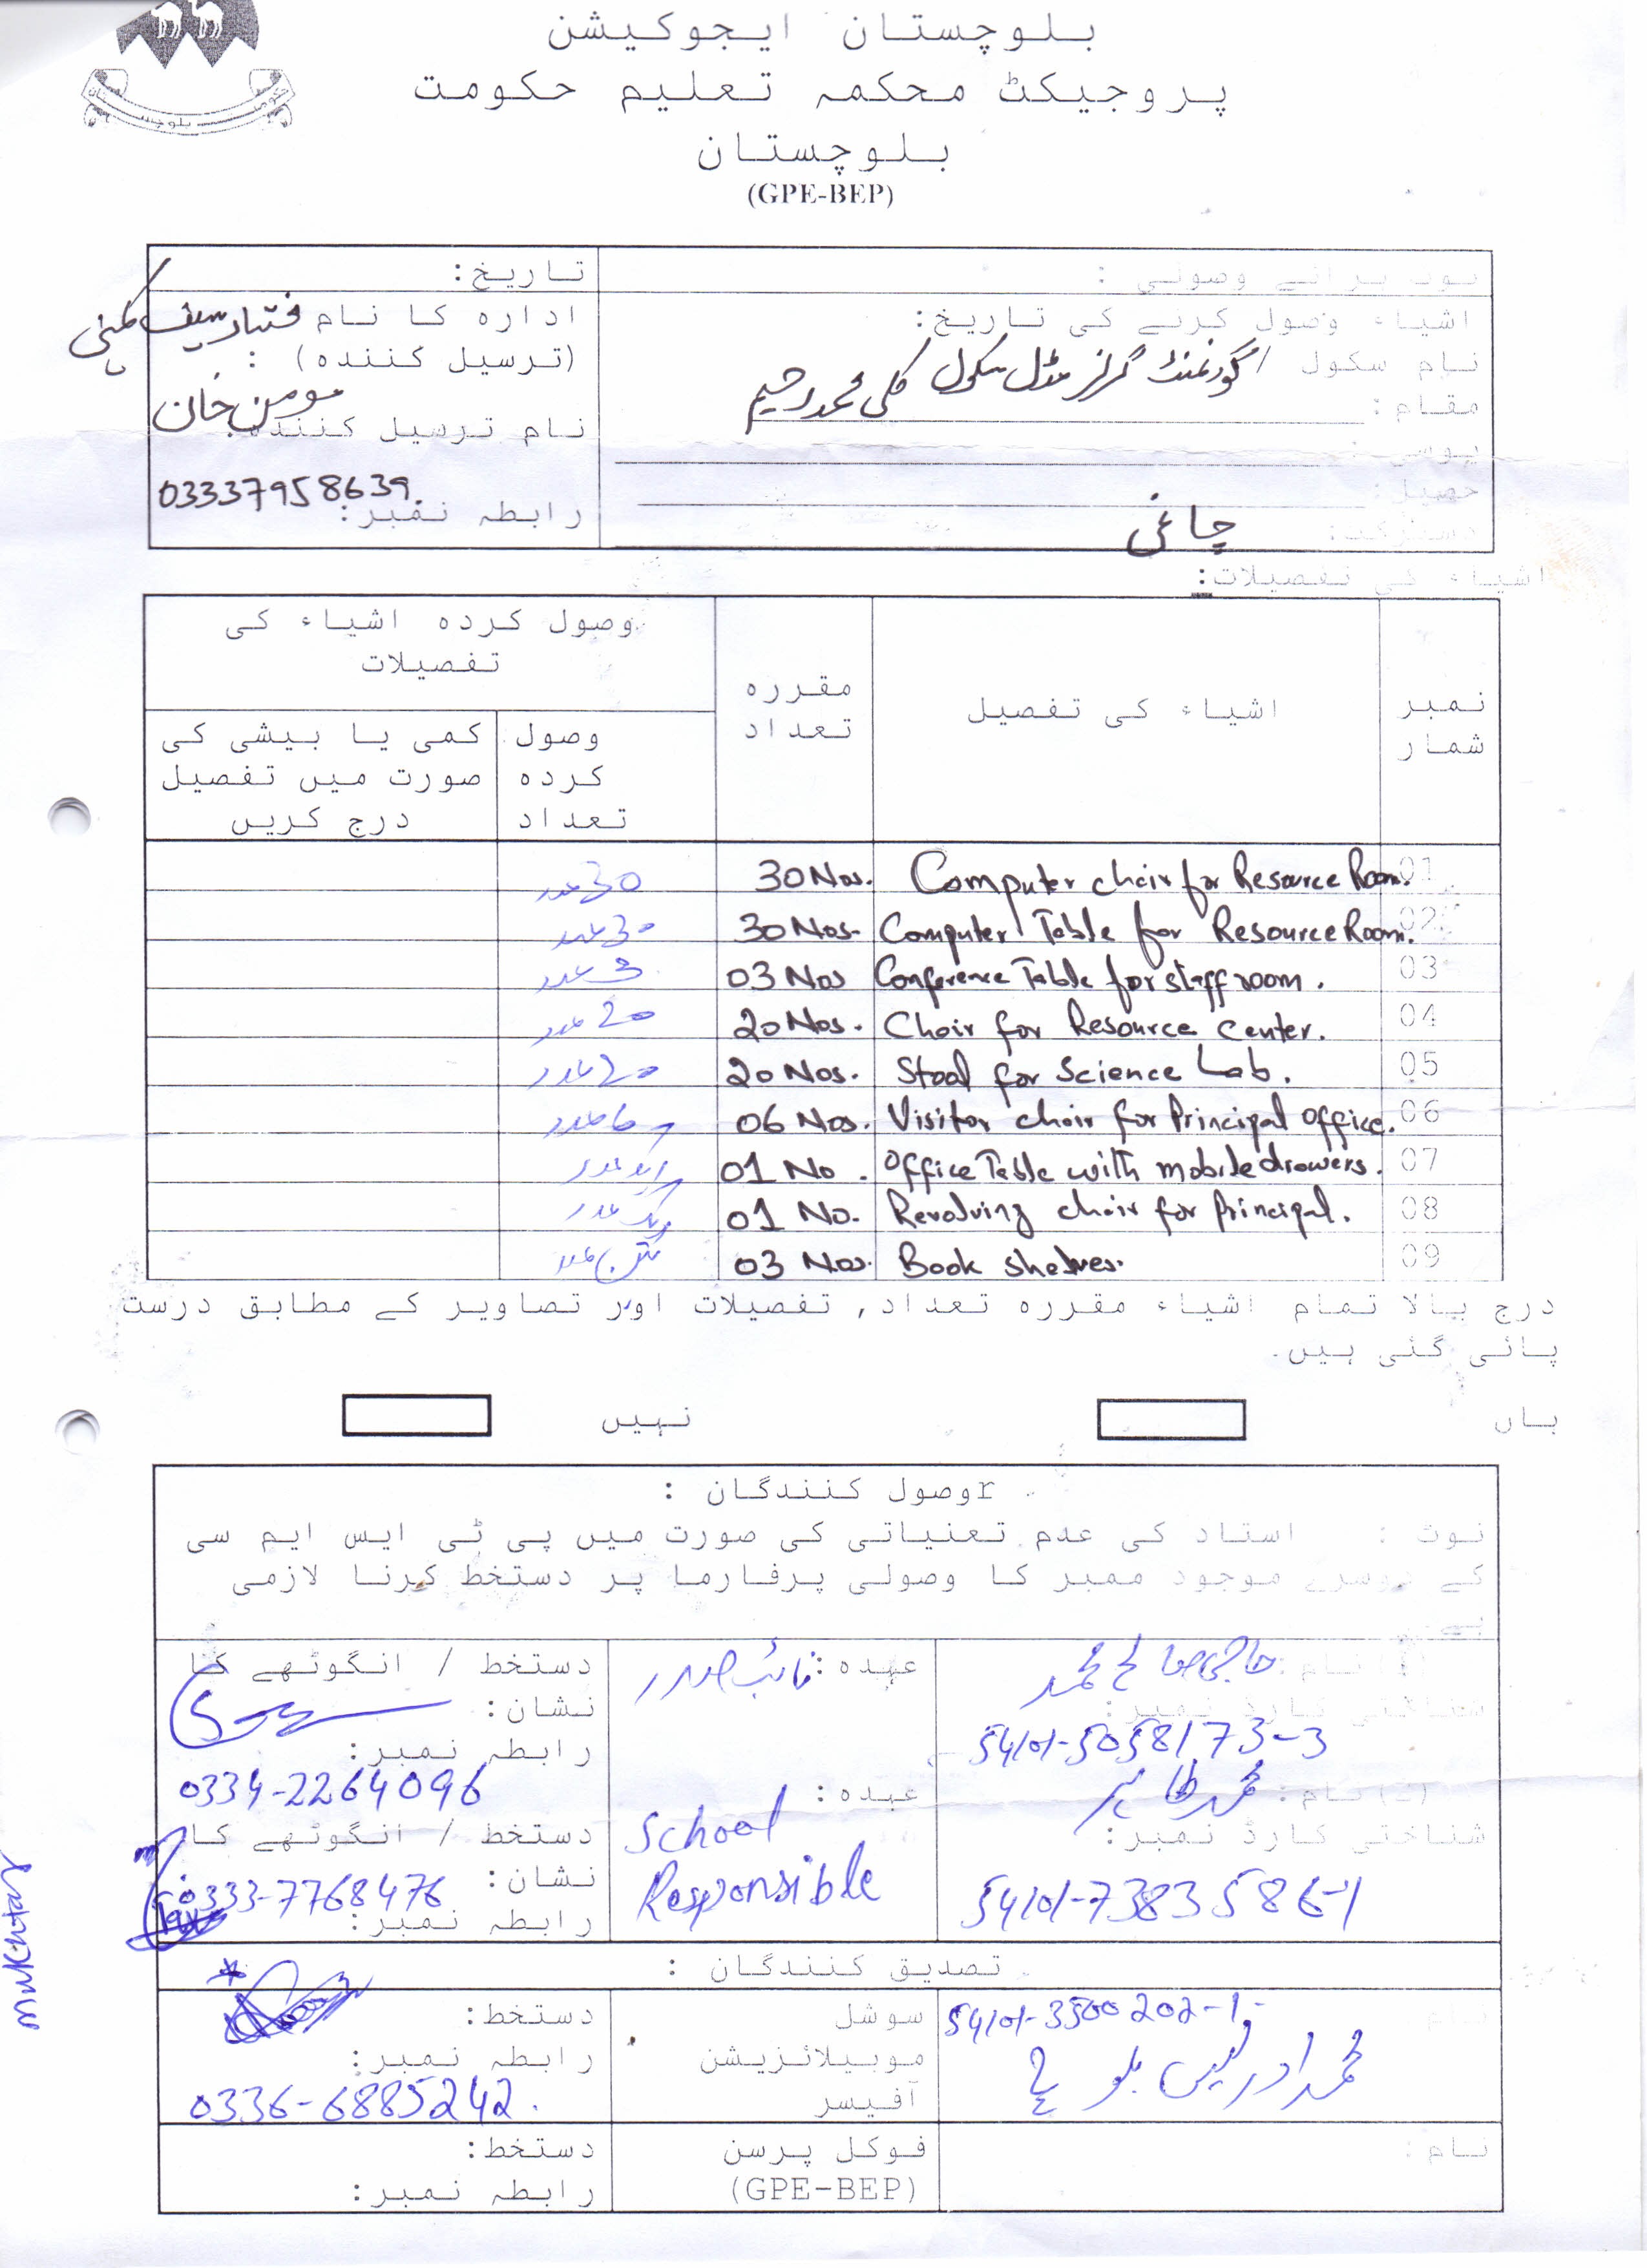 بلوچستان ایجوکیشن
پروجیکٹ محکمہ تعلیم حکومت
بلوچستان
(GPE-BEP)
وصولی :
تاریخ:
اشیاء وصول کرنے کی تاریخ:
ادارہ کا نام
(ترسیل کنندہ) :
نام سکول / گورنمنٹ گرلز مڈل سکول کلی محمد رحیم
مقام:
مومن خان
نام ترسیل کنندہ:
03337958639
رابطہ نمبر:
چاغی
اشیاء کی تفصیلات:
نمبر شمار
اشیاء کی تفصیل
مقررہ تعداد
وصول کردہ اشیاء کی تفصیلات
وصول کردہ تعداد
کمی یا بیشی کی صورت میں تفصیل درج کریں
01 Computer chair for Resource Room. 30 Nos. 30 عدد
02 Computer Table for Resource Room. 30 Nos. 30 عدد
03 Conference Table for staff room. 03 Nos 3 عدد
04 Chair for Resource Center. 20 Nos. 20 عدد
05 Stool for Science Lab. 20 Nos. 20 عدد
06 Visitor chair for Principal office. 06 Nos. 6 عدد
07 Office Table with mobile drawers. 01 No. ایک عدد
08 Revolving chair for Principal. 01 No. ایک عدد
09 Book shelves. 03 Nos. تین عدد
درج بالا تمام اشیاء مقررہ تعداد, تفصیلات اور تصاویر کے مطابق درست
پائی گئی ہیں.
ہاں
نہیں
rوصول کنندگان :
نوٹ : استاد کی عدم تعنیاتی کی صورت میں پی ٹی ایس ایم سی
کے دوسرے موجود ممبر کا وصولی پرفارما پر دستخط کرنا لازمی
ہے
نام: حاجی صالح محمد
عہدہ: نائب صدر
دستخط / انگوٹھے کا
نشان:
شناختی کارڈ نمبر:
54101-5058173-3
رابطہ نمبر:
0334-2264096
نام: محمد طاہر
عہدہ:
School
Responsible
دستخط / انگوٹھے کا
نشان:
شناختی کارڈ نمبر:
54101-7383586-1
0333-7768476
رابطہ نمبر:
mukhtar
تصدیق کنندگان :
نام
54101-3500202-1
محمد ادریس بلوچ
سوشل
موبیلائزیشن
آفیسر
دستخط:
رابطہ نمبر:
0336-6885242.
نام:
فوکل پرسن
(GPE-BEP)
دستخط:
رابطہ نمبر: